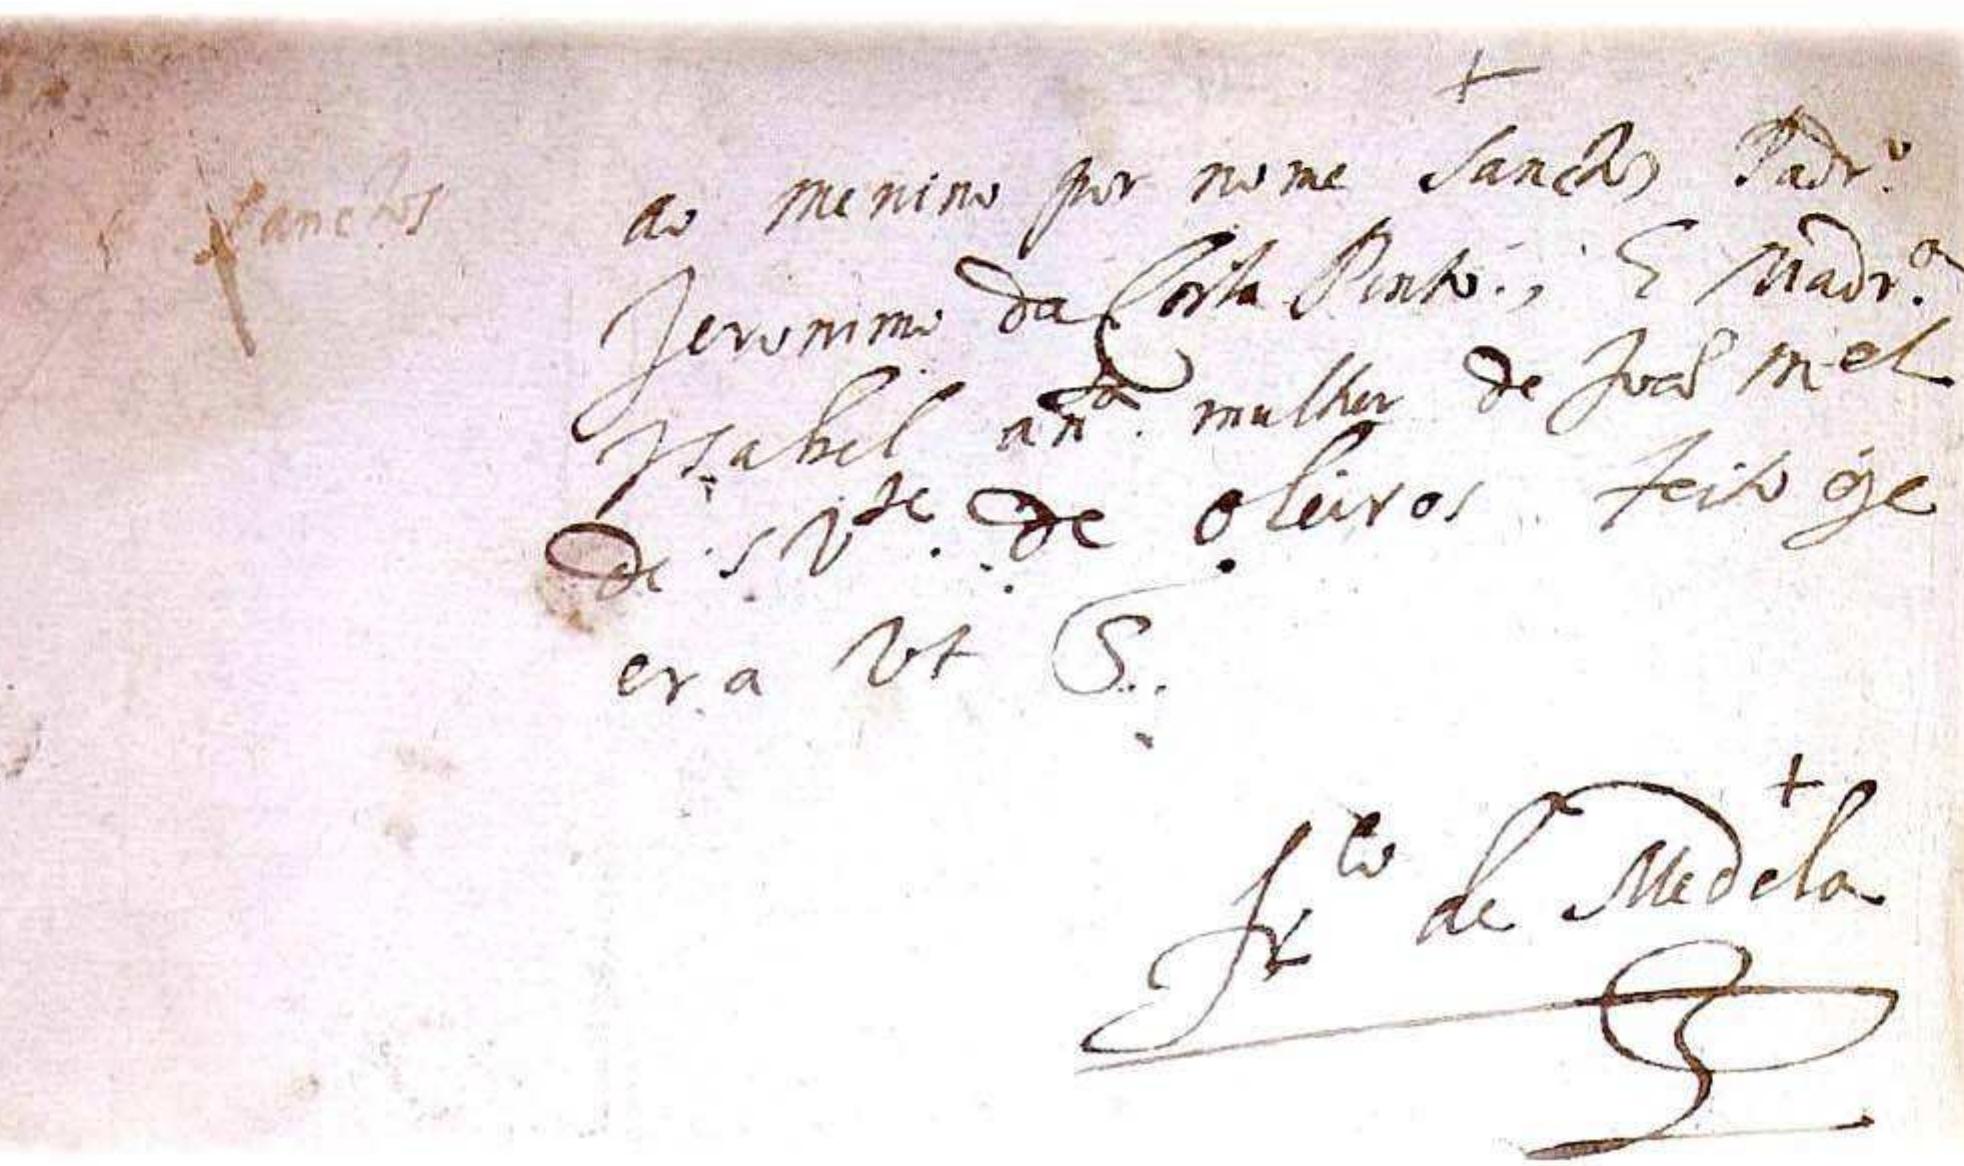 +
Sanchos
ao menino por nome Sancho, Padr.º
Jeronimo da Costa Pinto., E Madr.ª
Ysabel añt.ª mulher de João m el
de S V.te de oleiros feito oje
era Vt S..
+
fr.co de Medela